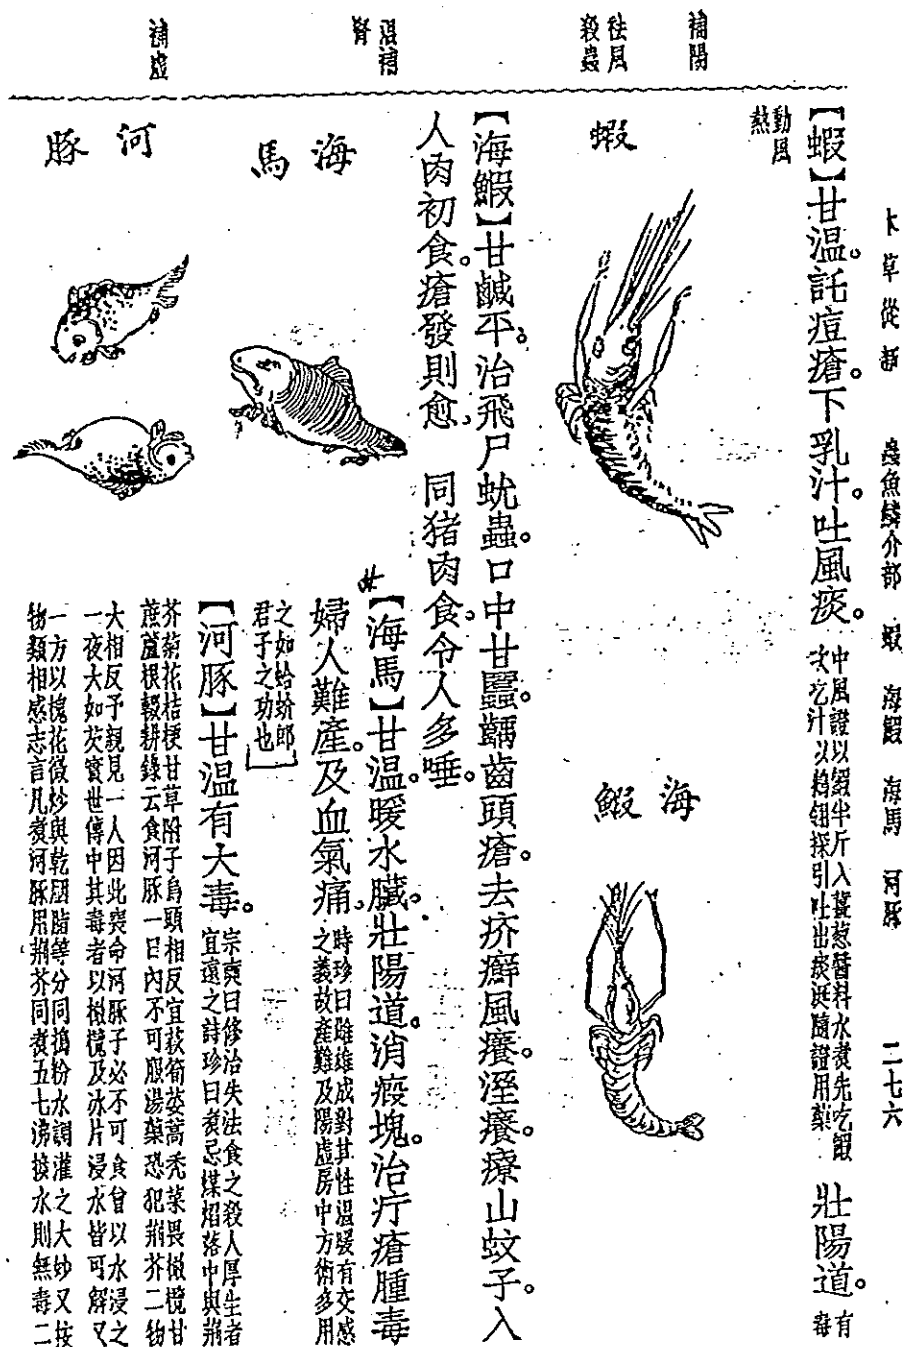 本草從新　蟲魚鱗介部　蝦　海鰕　海馬　河豚　二七六
補陽
祛風
殺蟲
溫補
腎
補虛
【蝦】甘溫。託痘瘡。下乳汁。吐風痰。中風證以鰕半斤入薑葱醬料水煮先吃鰕
次吃汁以鵝翎探引吐出痰涎隨證用藥　壯陽道。有毒
動風
熱
蝦
海鰕
【海鰕】甘鹹平。治飛尸蚘蟲。口中甘䘌。齲齒頭瘡。去疥癬風癢。溼癢。療山蚊子。入
人肉初食。瘡發則愈　同猪肉食。令人多唾。
海馬
【海馬】甘溫。暖水臟。壯陽道。消瘕塊。治疔瘡腫毒
婦人難產。及血氣痛。時珍曰雌雄成對其性溫暖有交感
之義故產難及陽虛房中方術多用
之如蛤蚧郎
君子之功也
河豚
【河豚】甘溫有大毒。宗奭曰修治失法食之殺人厚生者
宜遠之時珍曰煮忌煤炲落中與荊
芥菊花桔梗甘草附子烏頭相反宜荻筍蔞蒿禿菜畏橄欖甘
蔗蘆根輟耕錄云食河豚一日內不可服湯藥恐犯荊芥二物
大相反予親見一人因此喪命河豚子必不可食曾以水浸之
一夜大如芡實世傳中其毒者以橄欖及冰片浸水皆可解又
一方以槐花微炒與乾胭脂等分同搗粉水調灌之大妙又按
物類相感志言凡煮河豚用荊芥同煮五七沸換水則無毒二